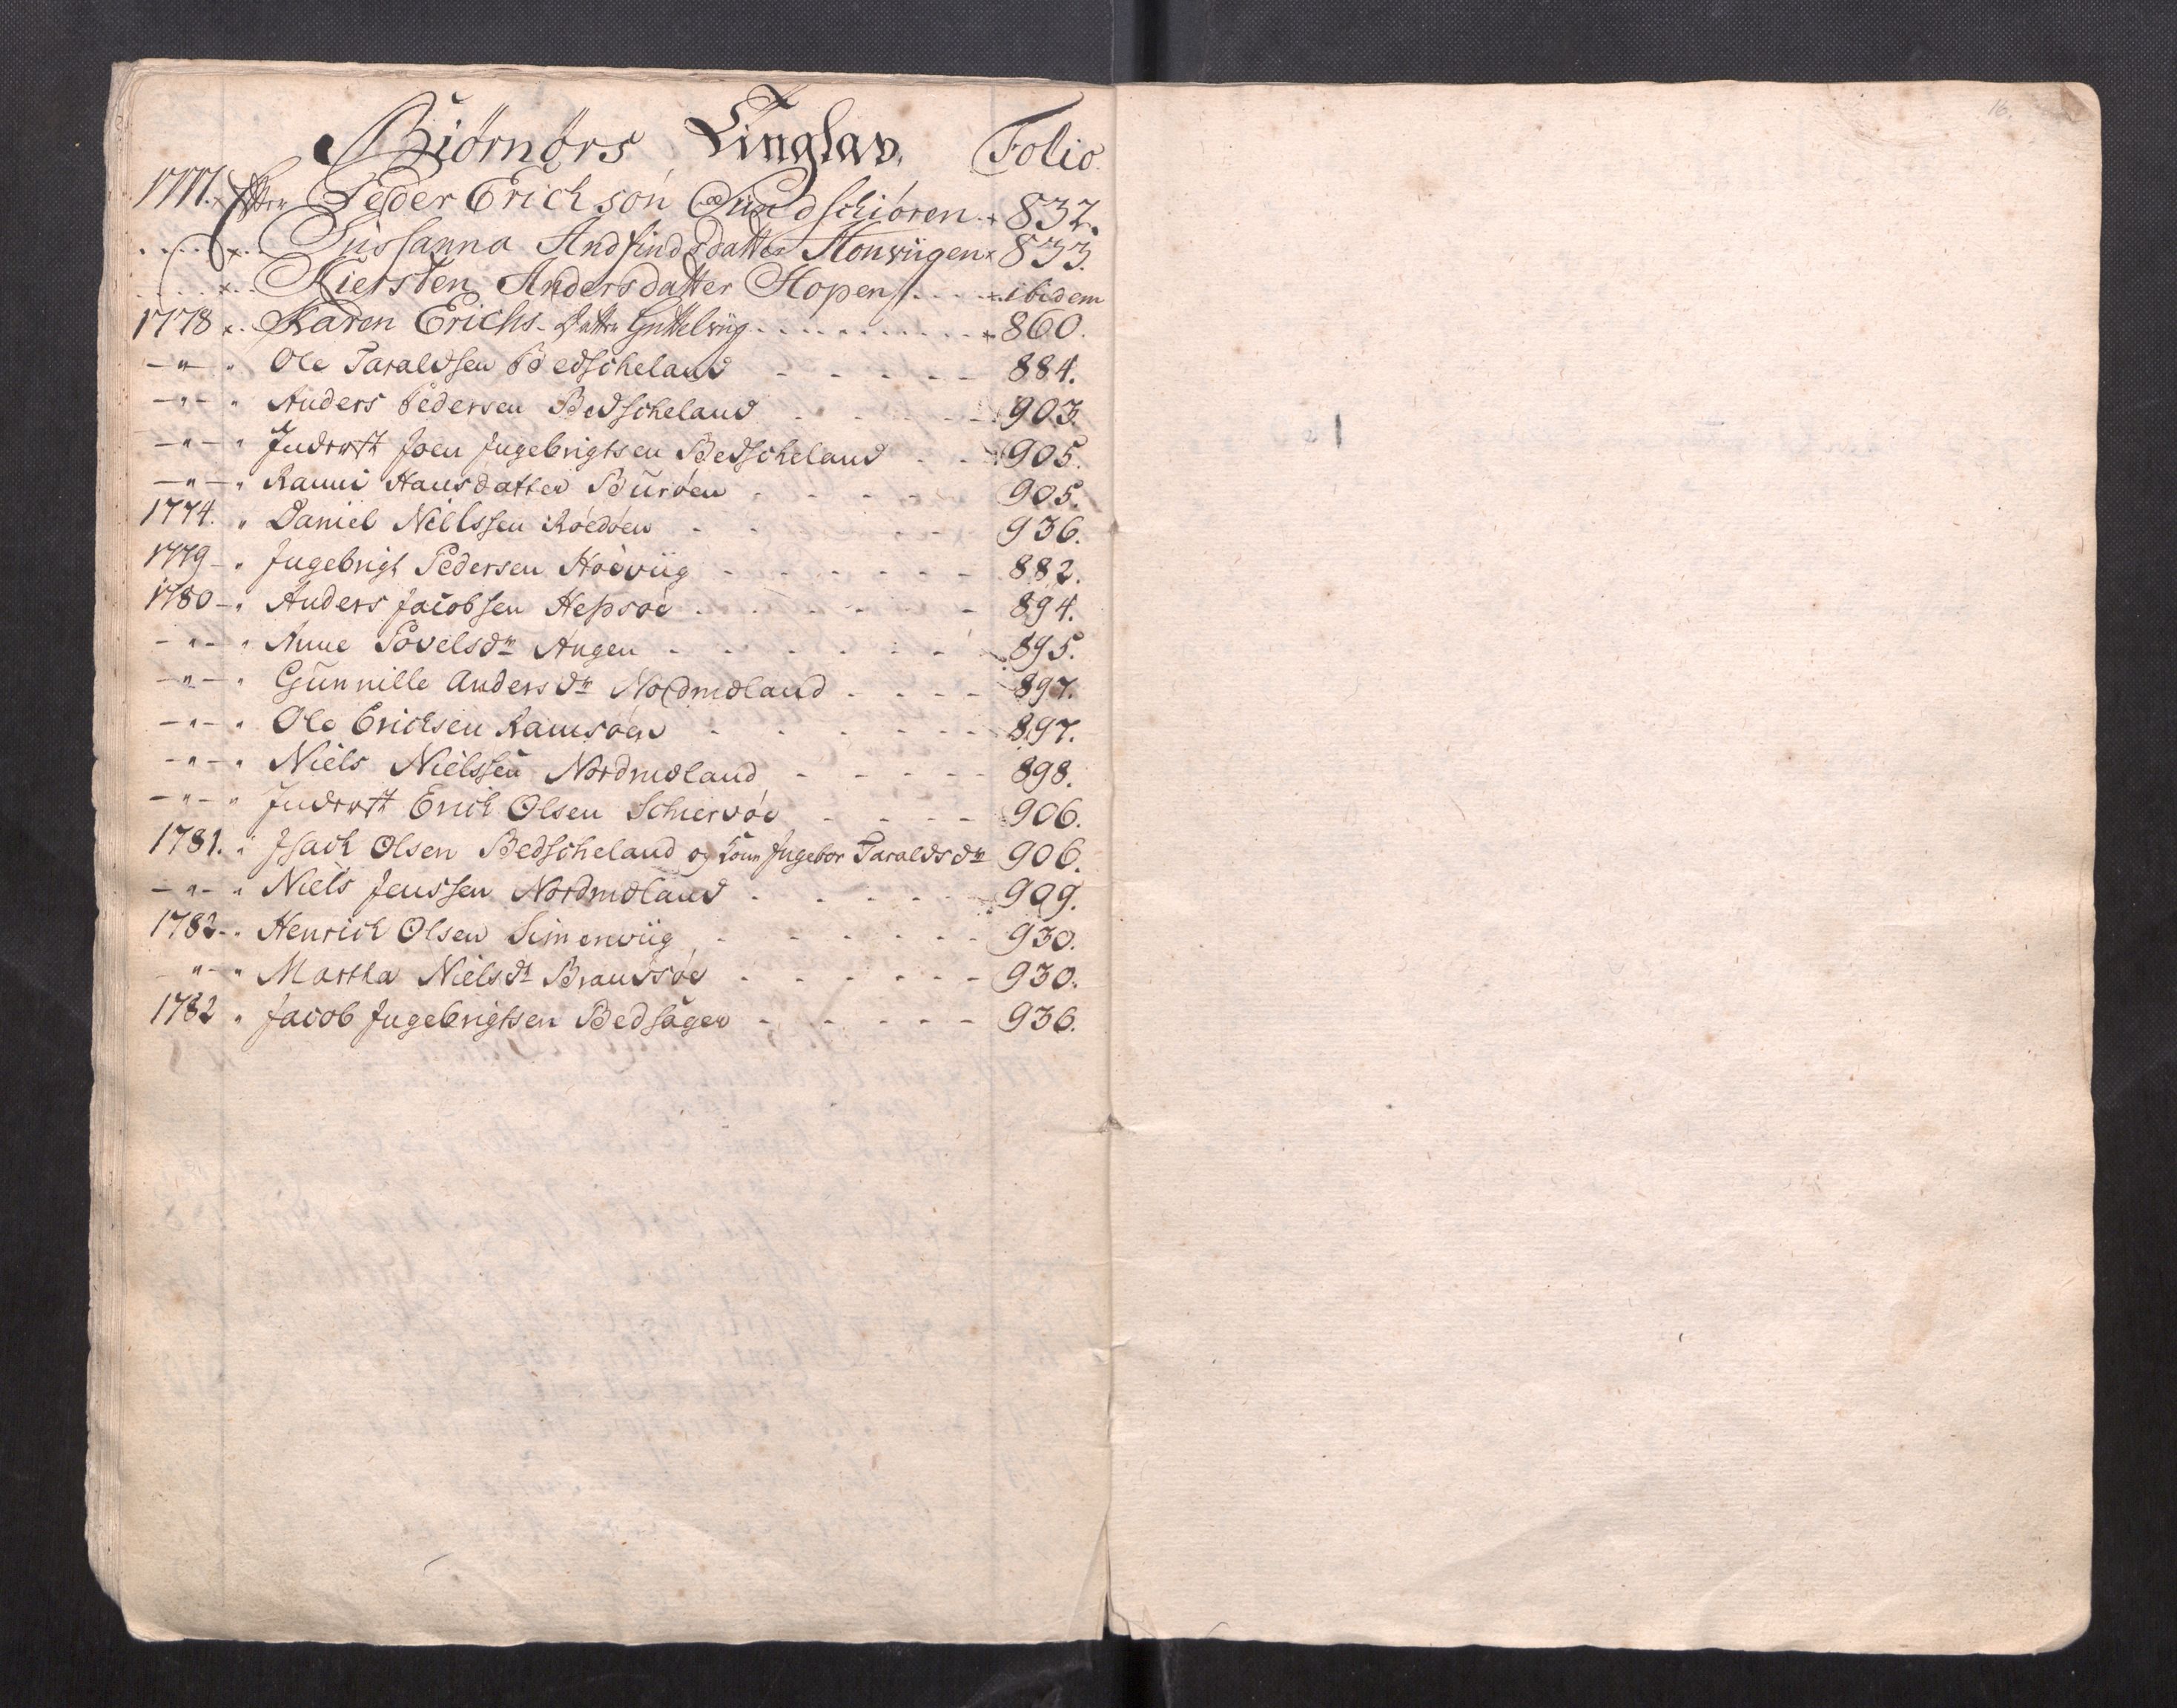 Biørnørs Tinglav. Folio.
1777. x Efter Peder Erichsøn Sundschiøren x 832.
x Sussanna Andfindsdatter Monviigen x 833.
x Kiersten Andersdatter Hopen x ibidem
1778 x Karen Erichs Datter x 860.
–"– " Ole Taraldsen Bedscheland 884.
–"– " Anders Pedersen Bedscheland 903.
–"– " Inderst Joen Ingebrigtsen Bedscheland 905.
–"– " Ranni Hansdatter Burøen 905.
1774. " Daniel Nillssen Røedøen 936.
1779 – " Ingebrigt Pedersen Høeviig 882.
1780 – " Anders Jacobsen Hepsøe 894.
–"– " Anne Povelsdr Angen 895.
–"– " Gunnille Andersdr Nordmeland 897.
–"– " Ole Erichsen Ramsøen 897.
–"– " Niels Nielssen Nordmeland 898.
–"– " Inderst Erich Olsen Schiervøe 906.
1781. " Isach Olsen Bedscheland og Kone Ingebor Taraldsdr 906.
–"– " Niels Jenssen Nordmeland 909.
1782 – " Henrich Olsen Simenviig 930.
–"– " Martha Nielsdr Brandsøe 930.
1782 " Jacob Ingebrigtsen Bedsager 936.
16.